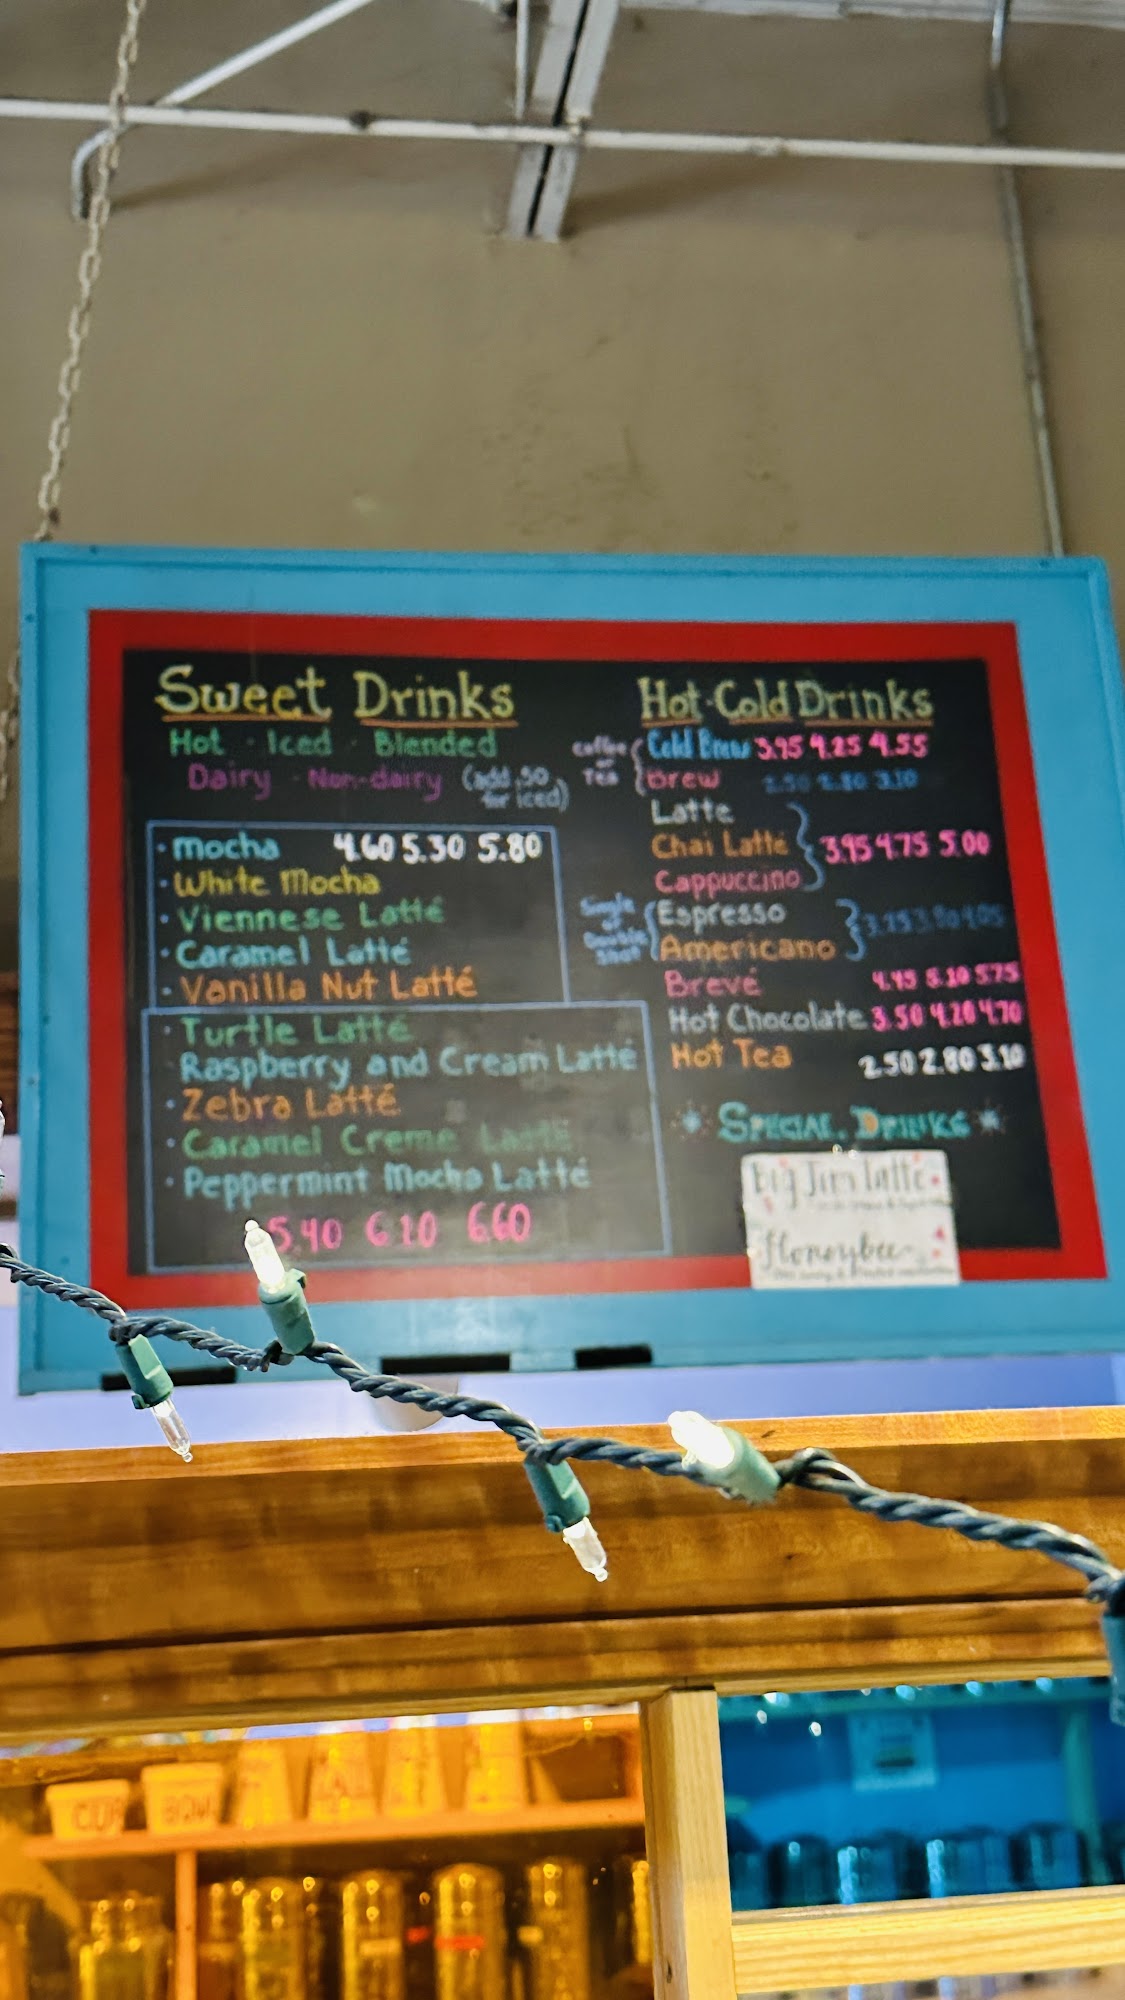 Sweet Drinks
Hot · Iced · Blended
Dairy · Non-dairy (add .50
for iced)
· mocha 4.60 5.30 5.80
· White Mocha
· Viennese Latté
· Caramel Latté
· Vanilla Nut Latté
· Turtle Latté
· Raspberry and Cream Latté
· Zebra Latté
· Caramel Creme Latté
· Peppermint Mocha Latté
5.40 6.10 6.60
Hot·Cold Drinks
coffee
or
Tea
Cold Brew 3.95 4.25 4.55
Brew 2.50 2.80 3.10
Latte
Chai Latté 3.95 4.75 5.00
Cappuccino
Single
or
Double
Shot
Espresso
Americano
Brevé 4.45 5.10 5.75
Hot Chocolate 3.50 4.20 4.70
Hot Tea 2.50 2.80 3.10
Special Drinks
Big Jim latte
Honeybee
CUP
BOWL